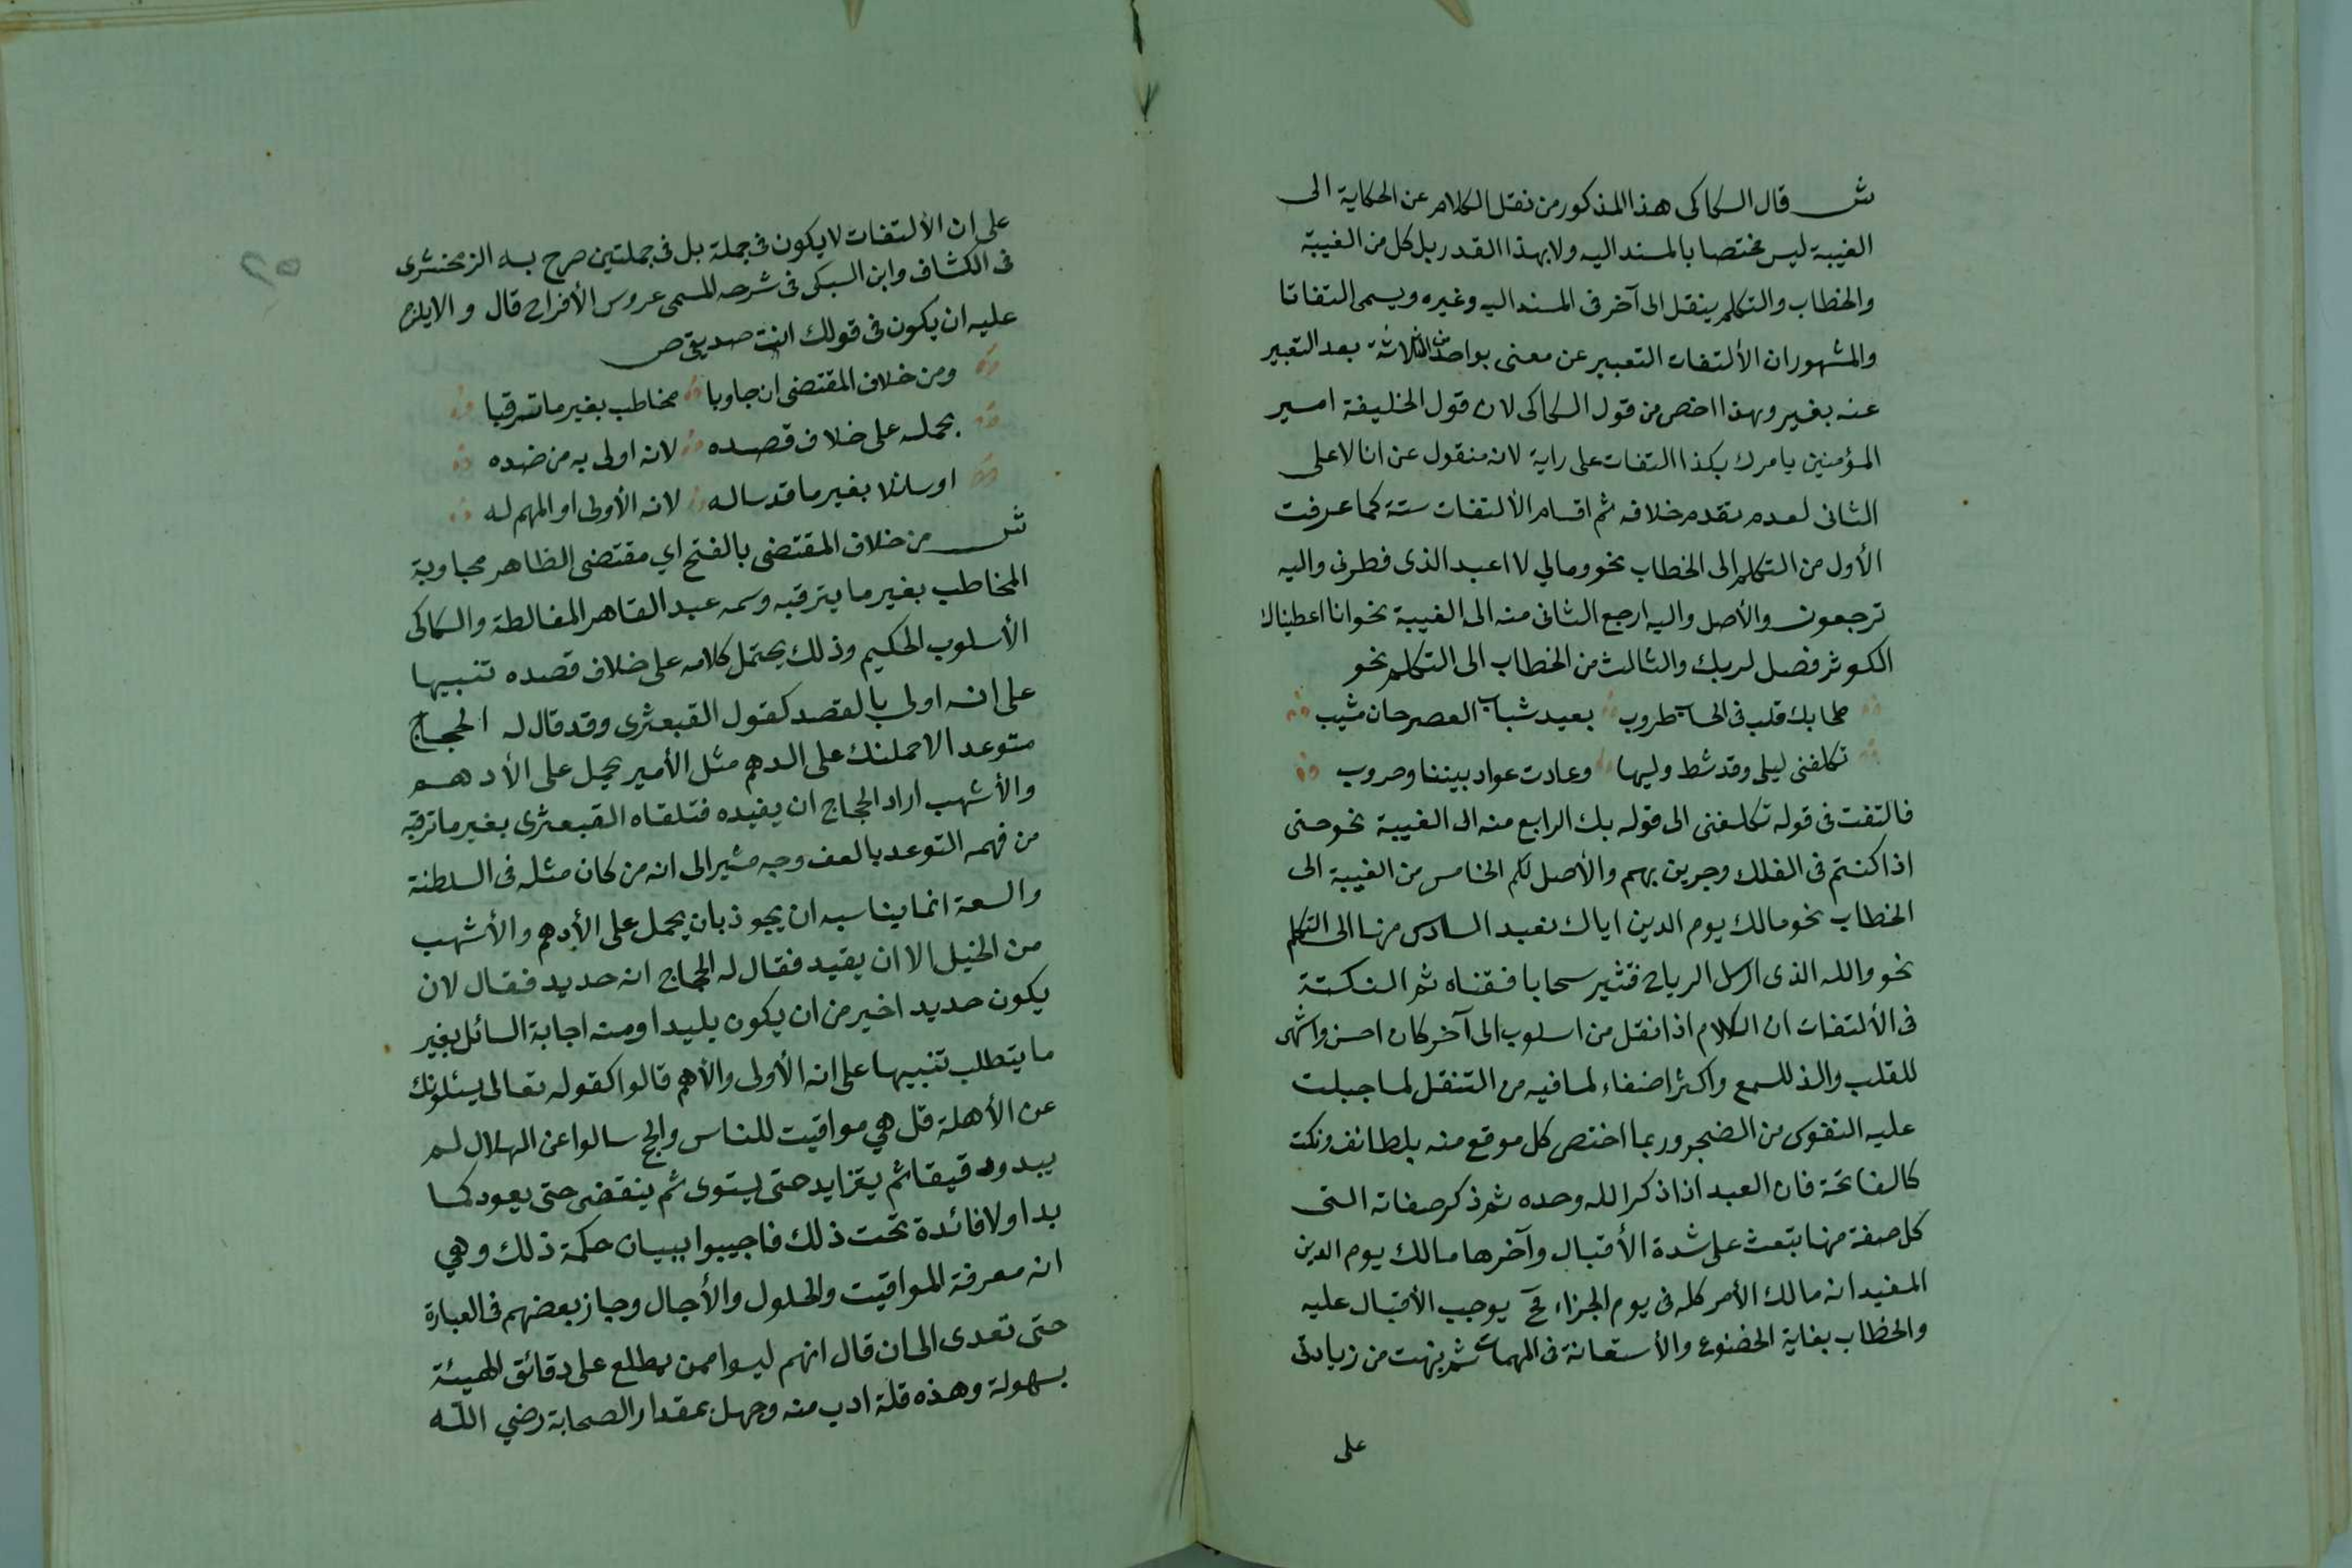 ش قال السكاكى هذا المذكور من نقل الكلام عن الحكاية الى
الغيبة ليس مختصا بالمسند اليه ولا بهذا القدر بل كل من الغيبة
والخطاب والتكلم ينقل الى آخر فى المسند اليه وغيره ويسمى التفاتا
والمشهور ان الألتفات التعبير عن معنى بواحد من الثلاثة بعد التعبير
عنه بغير وهذا اخص من قول السكاكى لان قول الخليفة امير
المؤمنين يامرك بكذا التفات على راية لانه منقول عن انا لا على
الثانى لعدم تقدم خلافه ثم اقسام الألتفات ستة كما عرفت
الأول من التكلم الى الخطاب نحو ومالي لا اعبد الذى فطرنى واليه
ترجعون والأصل واليه ارجع الثانى منه الى الغيبة نحو انا اعطيناك
الكوثر فصل لربك والثالث من الخطاب الى التكلم نحو
طحا بك قلب فى الحسان طروب بعيد شباب العصر حان مشيب
تكلفنى ليلى وقد شط وليها وعادت عواد بيننا وحروب
فالتفت فى قوله تكلفنى الى قوله بك الرابع منه الى الغيبة نحو حتى
اذا كنتم فى الفلك وجرين بهم والأصل لكم الخامس من الغيبة الى
الخطاب نحو مالك يوم الدين اياك نعبد السادس منها الى التكلم
نحو والله الذى ارسل الرياح فتثير سحابا فسقناه ثم النكتة
فى الألتفات ان الكلام اذا نقل من اسلوب الى آخر كان احسن واشهى
للقلب والذ للسمع واكثر اصغاء لما فيه من التنقل لما جبلت
عليه النفوى من الضجر وربما اختص كل موقع منه بلطائف ونكت
كالفاتحة فان العبد اذا ذكر الله وحده ثم ذكر صفاته التى
كل صفة منها تبعث على شدة الأقبال وآخرها مالك يوم الدين
المفيد انه مالك الأمر كله فى يوم الجزاء فح يوجب الأقبال عليه
والخطاب بغاية الخضوع والأستعانة فى المهمات ثم نبهت من زيادتى
على
على ان الألتفات لا يكون فى جملة بل فى جملتين صرح به الزمخشرى
فى الكشاف وابن السبكى فى شرحه المسمى عروس الأفراح قال والا يلزم
عليه ان يكون فى قولك انت صديقى ص
ومن خلاف المقتضى ان جاوبا مخاطب بغير ما ترقبا
بحمله على خلاف قصده لانه اولى به من ضده
او سائلا بغير ما قد ساله لانه الأولى او المهم له
ش من خلاف المقتضى بالفتح اي مقتضى الظاهر مجاوبة
المخاطب بغير ما يترقبه وسمه عبد القاهر المغالطة والسكاكى
الأسلوب الحكيم وذلك يحتمل كلامه على خلاف قصده تنبيها
على انه اولى بالقصد كقول القبعثرى وقد قال له الحجاج
متوعدا لاحملنك على الدهم مثل الأمير يحمل على الأدهم
والأشهب اراد الحجاج ان يقيده فتلقاه القبعثرى بغير ما ترقبه
من فهمه التوعد بالعف وجه مشير الى انه من كان مثله فى السلطنة
والسعة انما يناسبه ان يجوذ بان يحمل على الأدهم والأشهب
من الخيل الا ان يقيد فقال له الحجاج انه حديد فقال لان
يكون حديد اخير من ان يكون بليدا ومنه اجابة السائل بغير
ما يتطلب تنبيها على انه الأولى والأهم قالوا كقوله تعالى يسئلونك
عن الأهلة قل هي مواقيت للناس والحج سالوا عن الهلال لم
يبدو دقيقا ثم يتزايد حتى يستوى ثم ينقضى حتى يعود كما
بدا ولا فائدة تحت ذلك فاجيبوا ببيان حكمة ذلك وهي
انه معرفة المواقيت والحلول والأجال وجاز بعضهم فى العبارة
حتى تعدى الى ان قال انهم ليسوا ممن يطلع على دقائق الهيئة
بسهولة وهذه قلة ادب منه وجهل بمقدار الصحابة رضي الله